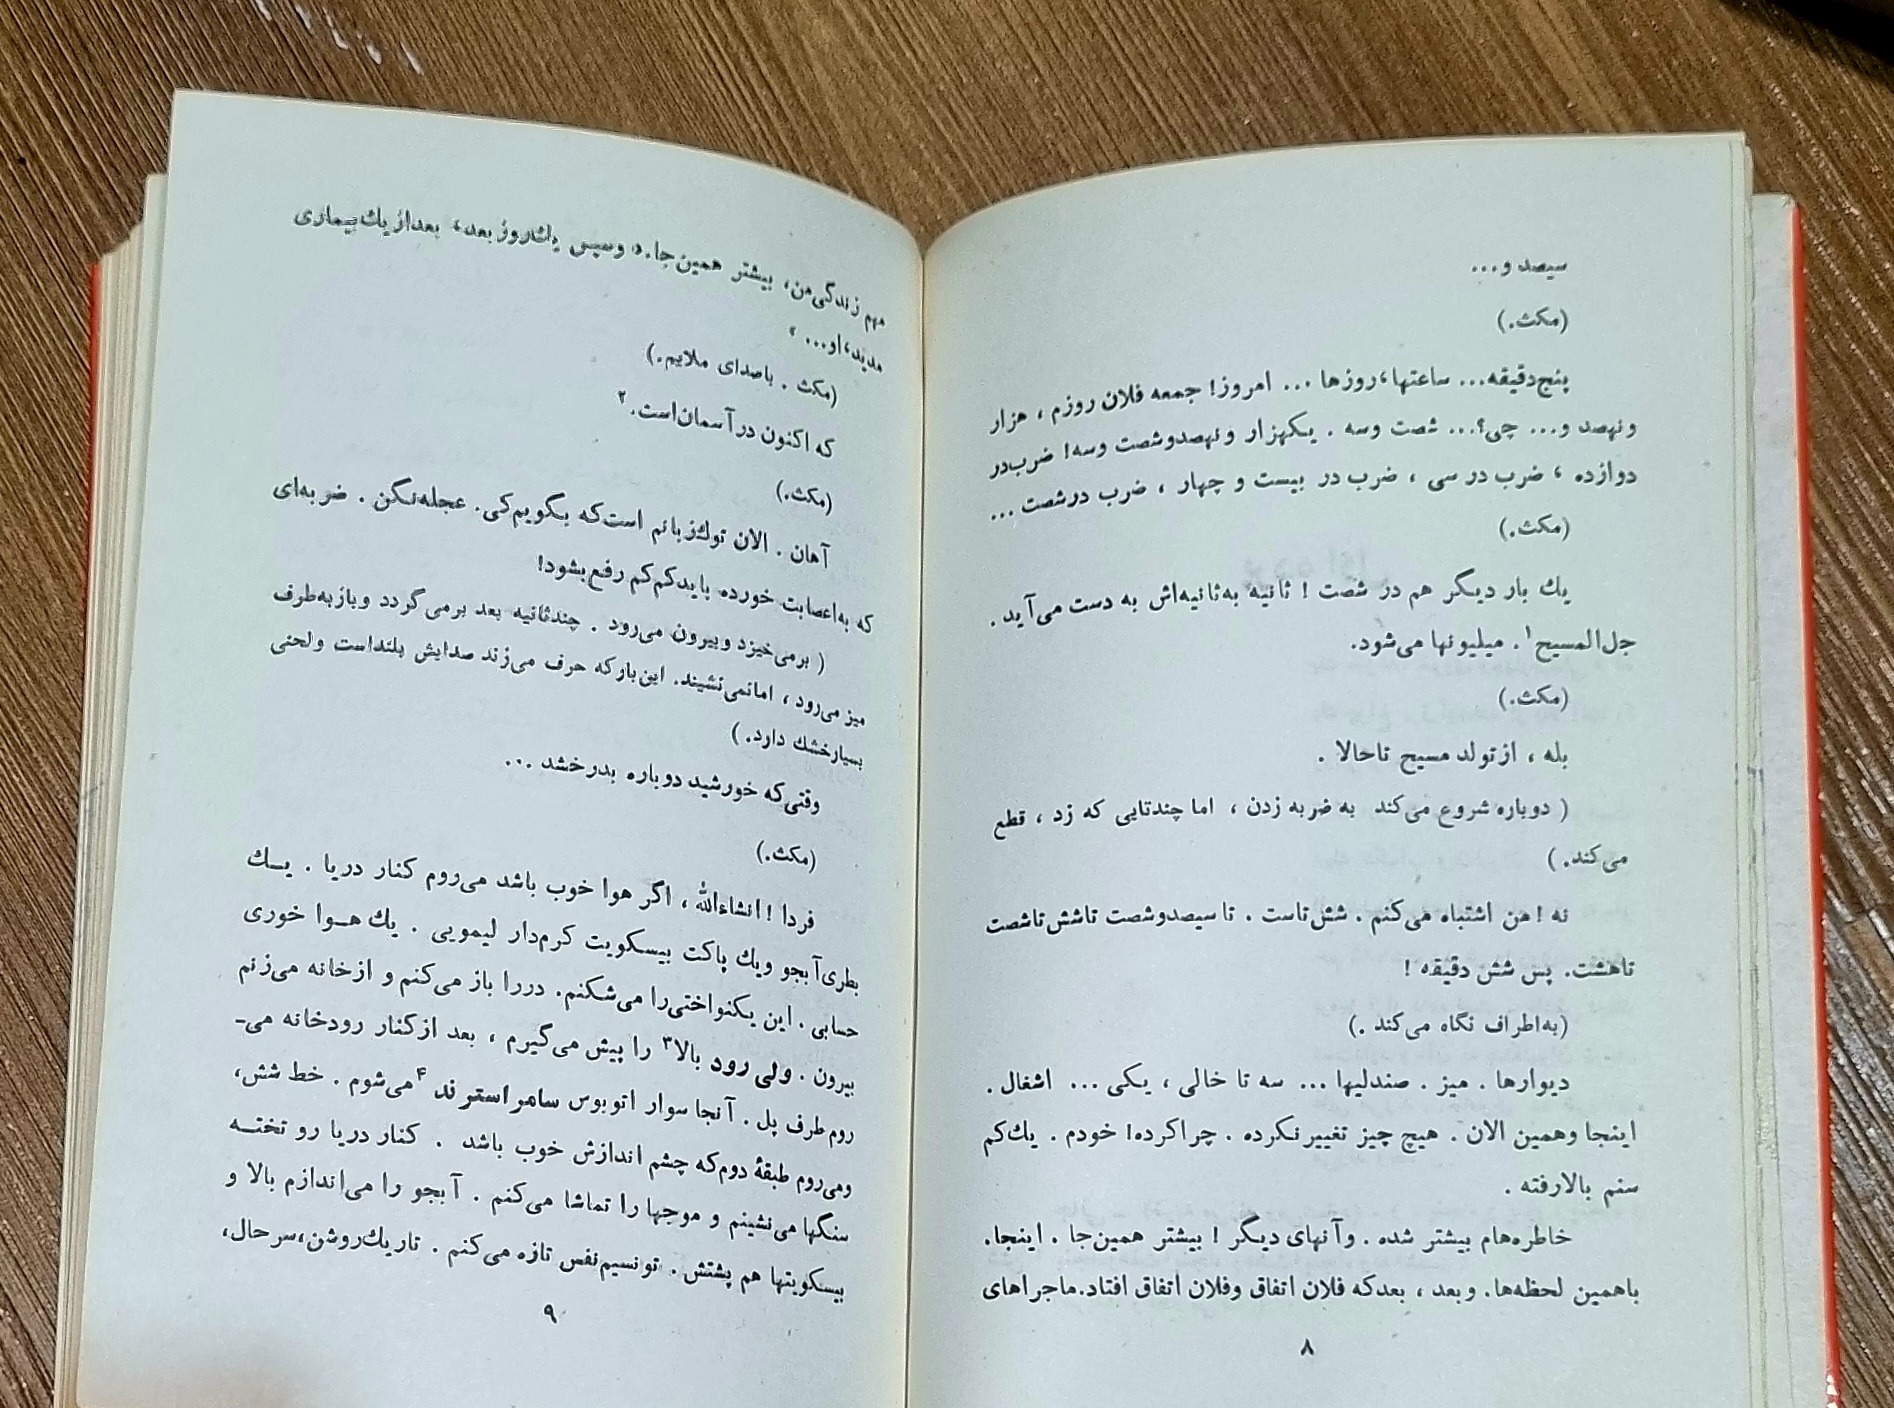 سیصد و...
(مکث.)
پنج‌دقیقه... ساعتها، روزها ... امروز! جمعه فلان روزم ، هزار
و نهصد و... چی؟... شصت وسه . یکهزار و نهصدوشصت وسه! ضرب‌در
دوازده ، ضرب در سی ، ضرب در بیست و چهار ، ضرب درشصت ...
(مکث.)
یك بار دیگر هم در شصت ! ثانیه به‌ثانیه‌اش به دست می‌آید .
جل‌المسیح۱ . میلیونها می‌شود.
(مکث.)
بله ، ازتولد مسیح تاحالا .
( دوباره شروع می‌کند به ضربه زدن ، اما چندتایی که زد ، قطع
می‌کند. )
نه ! من اشتباه می‌کنم . شش‌تاست . تا سیصدوشصت تاشش‌تاشصت
تاهشت. پس شش دقیقه !
(به‌اطراف نگاه می‌کند .)
دیوارها . میز . صندلیها ... سه تا خالی ، یکی ... اشغال .
اینجا وهمین الان . هیچ چیز تغییر نکرده . چراکرده! خودم . یك‌کم
سنم بالارفته .
خاطره‌هام بیشتر شده . وآنهای دیگر ! بیشتر همین‌جا . اینجا.
باهمین لحظه‌ها. وبعد ، بعدکه فلان اتفاق وفلان اتفاق افتاد.ماجراهای
۸
مهم زندگی‌من، بیشتر همین‌جا.« وسپس یك‌روز بعد، بعدازیك‌بیماری
مدید، او... »
(مکث . باصدای ملایم.)
که اکنون درآسمان‌است.۲
(مکث.)
آهان . الان توك‌زبانم است‌که بگویم‌کی. عجله‌نکن . ضربه‌ای
که به‌اعصابت خورده بایدکم‌کم رفع‌بشود!
( برمی‌خیزد وبیرون می‌رود . چندثانیه بعد برمی‌گردد وبازبه‌طرف
میز می‌رود ، امانمی‌نشیند. این‌بارکه حرف می‌زند صدایش بلنداست ولحنی
بسیارخشك دارد. )
وقتی‌که خورشید دوباره بدرخشد ...
(مکث.)
فردا ! انشاءالله ، اگر هوا خوب باشد می‌روم کنار دریا . یـك
بطری‌آبجو ویك پاکت بیسکویت کرم‌دار لیمویی . یك هـوا خوری
حسابی . این یکنواختی‌را می‌شکنم. دررا باز می‌کنم و ازخانه می‌زنم
بیرون . ولی رود بالا۳ را پیش می‌گیرم ، بعد ازکنار رودخانه می‌ـ
روم طرف پل . آنجا سوار اتوبوس سامر استر ند۴ می‌شوم . خط شش،
ومی‌روم طبقهٔ دوم‌که چشم اندازش خوب باشد . کنار دریا رو تختـه
سنگها می‌نشینم و موجها را تماشا می‌کنم . آبجو را می‌اندازم بالا و
بیسکویتها هم پشتش . تونسیم‌نفس تازه می‌کنم . تاریك‌روشن، سر حال،
۹